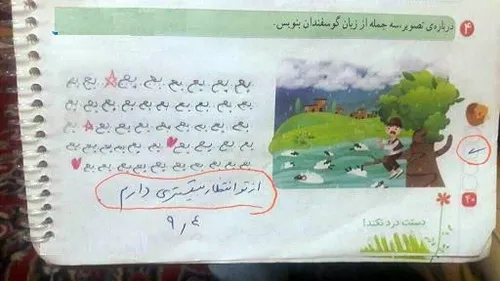 ۴ درباره‌ی تصویر، سه جمله از زبان گوسفندان بنویس.
بع بع بع بع بع بع بع بع بع
بع بع بع بع بع بع بع بع بع بع
بع بع بع بع بع بع بع بع بع
بع بع بع بع بع بع بع بع بع
بع بع بع بع بع بع بع بع بع بع
از تو انتظار بیشتری دارم
۹٫۴
۲۰
دستت درد نکند!